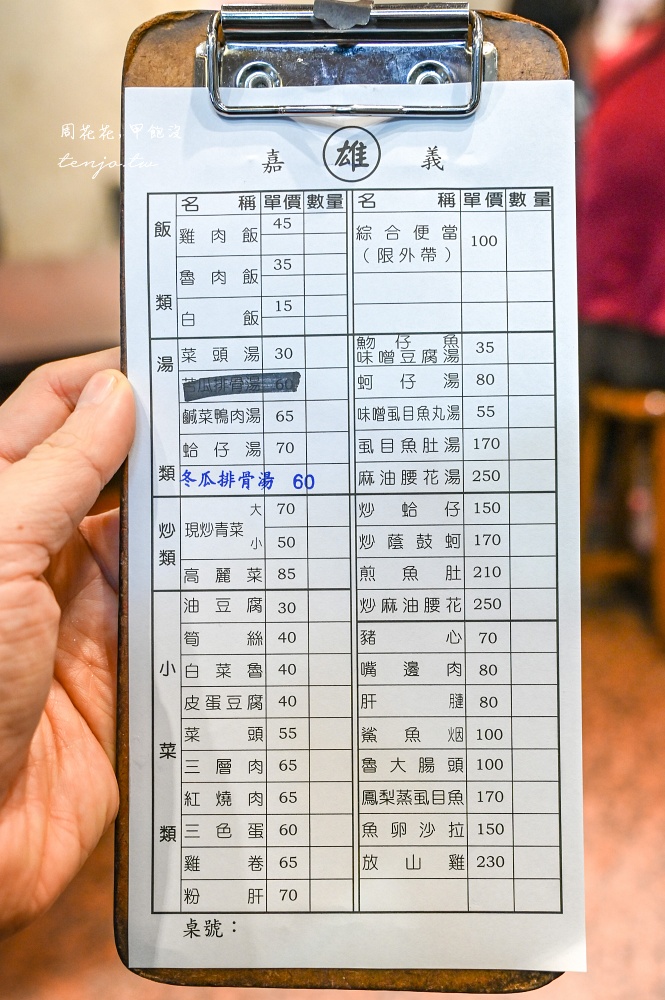 周花花,甲飽沒
tenjo.tw
嘉 雄 義
名稱 單價 數量 名稱 單價 數量
飯類
雞肉飯 45
魯肉飯 35
白飯 15
綜合便當 100
(限外帶)
湯類
菜頭湯 30
苦瓜排骨湯 60
鹹菜鴨肉湯 65
蛤仔湯 70
冬瓜排骨湯 60
魩仔魚
味噌豆腐湯 35
蚵仔湯 80
味噌虱目魚丸湯 55
虱目魚肚湯 170
麻油腰花湯 250
炒類
現炒青菜 大 70
小 50
高麗菜 85
炒蛤仔 150
炒蔭鼓蚵 170
煎魚肚 210
炒麻油腰花 250
小菜類
油豆腐 30
筍絲 40
白菜魯 40
皮蛋豆腐 40
菜頭 55
三層肉 65
紅燒肉 65
三色蛋 60
雞卷 65
粉肝 70
豬心 70
嘴邊肉 80
肝腱 80
鯊魚烟 100
魯大腸頭 100
鳳梨蒸虱目魚 170
魚卵沙拉 150
放山雞 230
桌號：